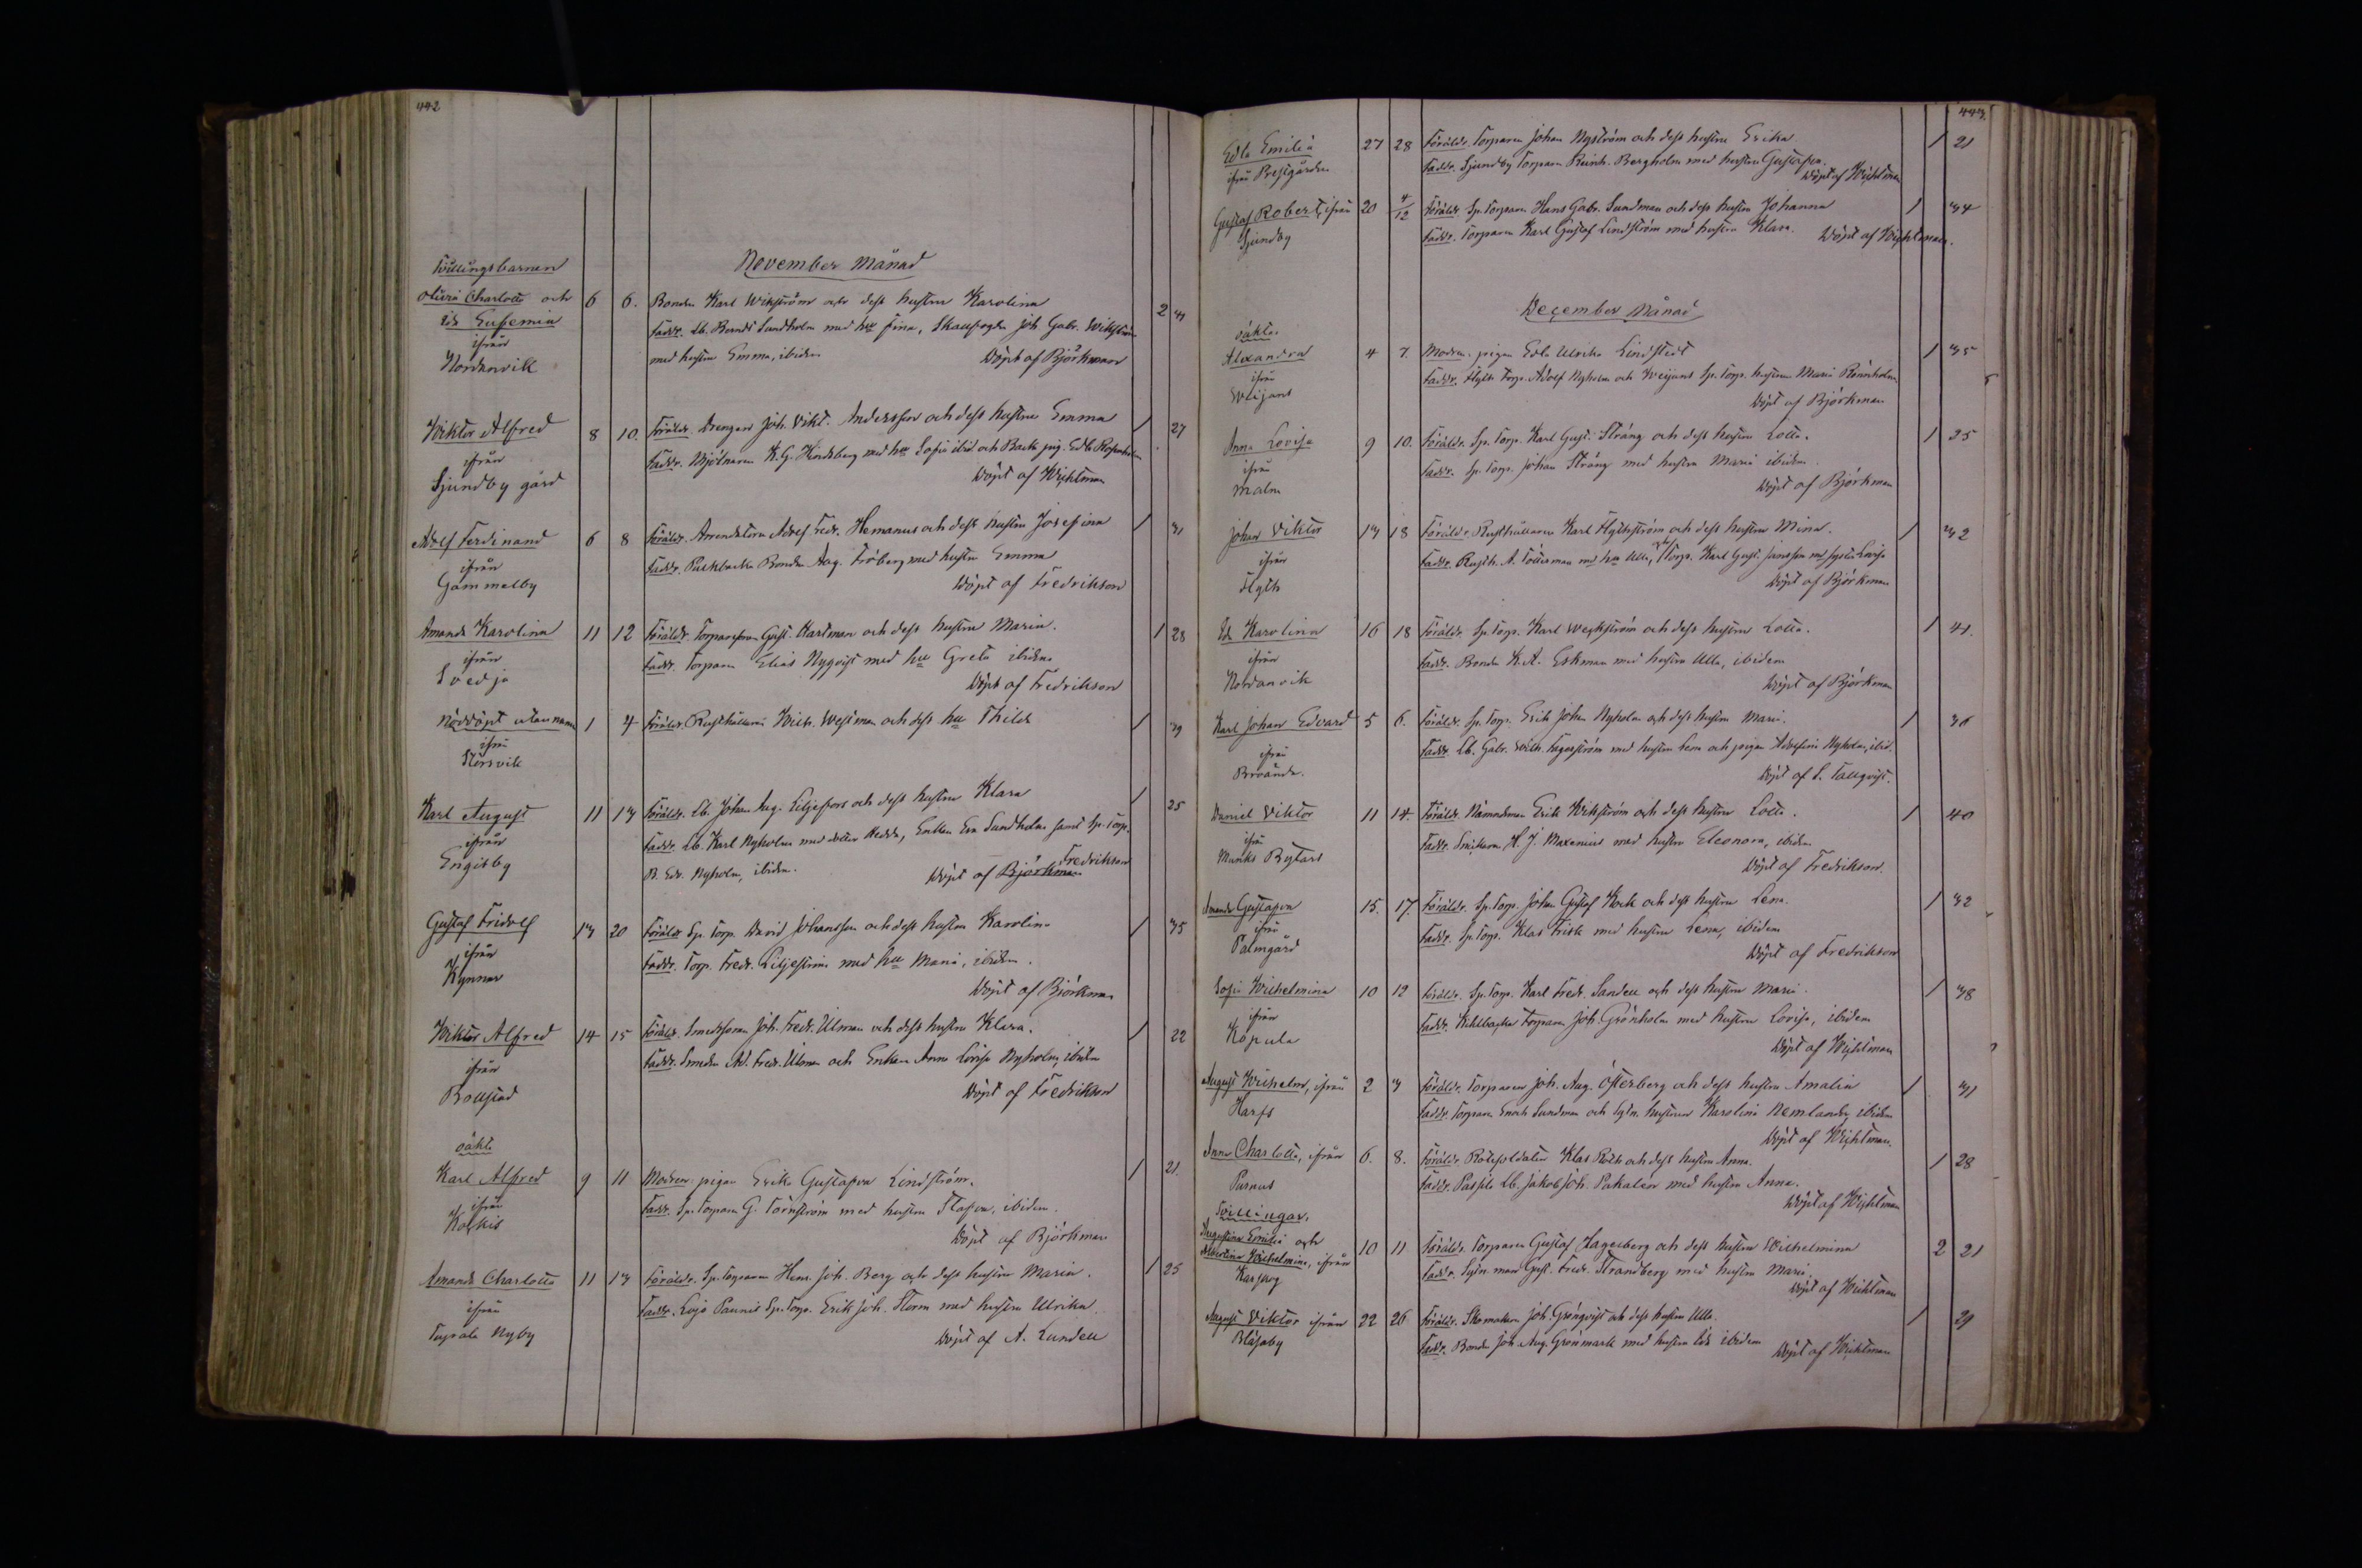 442
November Månad
Tvillingsbarnen
Olivia Charlotta och 6 6. Bonden Karl Wikström och dess hustru Karolina 2
Ida Eufemia
Faddr. Lb. Bernds Sundholm med hu Fina, Skaufogden Joh. Gabr. Wikström
ifrån
med hustru Emma, ibidem Döpt af Björkman
Nordanvik
Wiktor Alfred 8 10. Föräldr. Drengen Joh. Vikt. Andersson och dess hustru Emma / 27
ifrån
Faddr. Mjölnaren K. G. Hindsberg med hu Sofia ibid. och Back pig. Edla
Sjundby gård
Döpt af Wichtman
Adolf Ferdinand 6 8 Föräldr. Arrendatorn Adolf Fredr. Hemanus och dess hustru Josefina / 31
ifrån
Faddr. Bonden Aug. Fröberg med hustru Emma
Gammelby
Döpt af Fredrikson
Amanda Karolina 11 12 Föräldr. Gust. Hartman och dess hustru Maria. / 28
ifrån
Faddr. Torparn Elias Nyqvist med hu Greta ibidem
Svedja
Döpt af Fredrikson
Nöddöpt utan namn 1 4 Föräldr. Rusthållarn Wilh. Westman och dess hu Thilda / 39
ifrån
Störsvik
Karl August 11 13 Föräldr. Lb. Johan Aug. Liljefors och dess hustru Klara / 25
ifrån
Faddr. Lb. Karl Nyholm med dotter Hedda, Enkan Eva Sundholm samt Sp. Torp.
Engisby
B. Edv. Nyholm, ibidem. Döpt af Björkman Fredrikson
Gustaf Fridolf 13 20 Föräldr. Sp. Torp. David Johansson och dess hustru Karolina / 35
ifrån
Faddr. Torp. Fredr. Liljeström med hu Maria, ibidem.
Kynnar
Döpt af Björkman
Wiktor Alfred 14 15 Föräldr. Smedssonen Joh. Fredr. Ulman och dess hustru Klara. / 22
ifrån
Faddr. Smeden Ad. Fredr. Ulman och Enkan Anna Lovisa Nyholm, ibidem
Bollstad
Döpt af Fredrikson
oäkta
Karl Alfred 9 11 Modren: pigan Erika Gustafva Lindström. / 21.
ifrån
Faddr. Sp. Torparn G. Törnström med hustru Stafva, ibidem.
Koskis
Döpt af Björkman
Amanda Charlotta 11 13 Föräldr. Sp. Torparen Henr. Joh. Berg och dess hustru Maria. / 25
ifrån
Faddr. Lojo Paunis Sp. Torp. Erik Joh. Storm med hustru Ulrika.
Nyby
Döpt af A. Lundell
443.
Edla Emilia 27 28 Föräldr. Torparen Johan Nyström och dess hustru Erika / 21
ifrån Prestgården
Faddr. Sjundby Torparn Reinh. Bergholm med hustru Gustafva.
Döpt af Wichtman
Gustaf Robert, ifrån 20 4/12 Föräldr. Sp. Torparn Hans Gabr. Sundman och dess hustru Johanna / 34
Sjundby
Faddr. Torparen Karl Gustaf Lindström med hustru Klara. Döpt af Wichtman.
December Månad
oäkta.
Alexandra 4 7. Modren: pigan Edla Ulrika Lindstedt / 35
ifrån
Faddr. Flyth Torp. Adolf Nyholm och Weijans Sp. Torp. hustrun Maria Rönnholm
Weijans
Döpt af Björkman
Anna Lovisa 9 10. Föräldr. Sp. Torp. Karl Gust. Sträng och dess hustru Lotta. / 25
ifrån
Faddr. Sp. Torp. Johan Sträng med hustru Maria ibidem.
Malm
Döpt af Björkman
Johan Viktor 13 18 Föräldr. Rusthållaren Karl Flythström och dess hustru Mina. / 32
ifrån
Faddr. Rusth. A. Tötterman med hu Ulla, och Torp. Karl Gust. Jansson med Lovisa
Flyth
Döpt af Björkman
Ida Karolina 16 18 Föräldr. Sp. Torp. Karl Weckström och dess hustru Lotta. / 41.
ifrån
Faddr. Bonden K. A. Eskman med hustru Ulla, ibidem
Nordanvik
Döpt af Björkman
Karl Johan Edvard 5 6. Föräldr. Sp. Torp. Erik Johan Nyholm och dess hustru Maria. / 36
ifrån
Faddr. Lb. Gabr. Wilh. Fagerström med hustru Lena och pigan Adolfina Nyholm, ibid.
Broända.
Döpt af S. Tallqvist.
Daniel Viktor 11 14. Föräldr. Nämndeman Erik Wikström och dess hustru Lotta. / 40
ifrån
Faddr. H. J. Maxenius med hustru Eleonora, ibidem
Munks Bytars
Döpt af Fredrikson.
Amanda Gustafva 15. 17. Föräldr. Sp. Torp. Johan Gustaf Kock och dess hustru Lena. / 32
ifrån
Faddr. Sp. Torp. Klas Frisk med hustru Lena, ibidem
Palmgård
Döpt af Fredrikson
Sofia Wilhelmina 10 12 Föräldr. Sp. Torp. Karl Fredr. Sandell och dess hustru Maria. / 38
ifrån
Faddr. Torparen Joh. Grönholm med hustru Lovisa, ibidem
Kopula
Döpt af Wichtman
August Wilhelm, ifrån 2 3 Föräldr. Torparen Joh. Aug. Österberg och dess hustru Amalia / 31
Harfs
Faddr. Torparn Enok Sundman och Sytn. hustrun Karolina Nemlander ibidem
Döpt af Wichtman.
Anna Charlotta, ifrån 6. 8. Föräldr. Rotesoldaten Klas Roth och dess hustru Anna. / 28
Purnus
Faddr. Passila Lb. Jakob Joh. Pakalèn med hustru Anna.
Döpt af Wichtman
Tvillingar.
Augustina Emilia och
Albertina Wilhelmina, ifrån 10 11 Föräldr. Torparen Gustaf Hagerberg och dess hustru Wilhelmina 2 21
Karskog
Faddr. Sytn. man Gust. Fredr. Strandberg med hustru Maria.
Döpt af Wichtman
August Viktor ifrån 22 26 Föräldr. Skomakarn Joh. Grönqvist och dess hustru Ulla. / 29
Blåsaby
Faddr. Bonden Joh. Aug. Grönmark med hustru Lisa ibidem Döpt af Wichtman